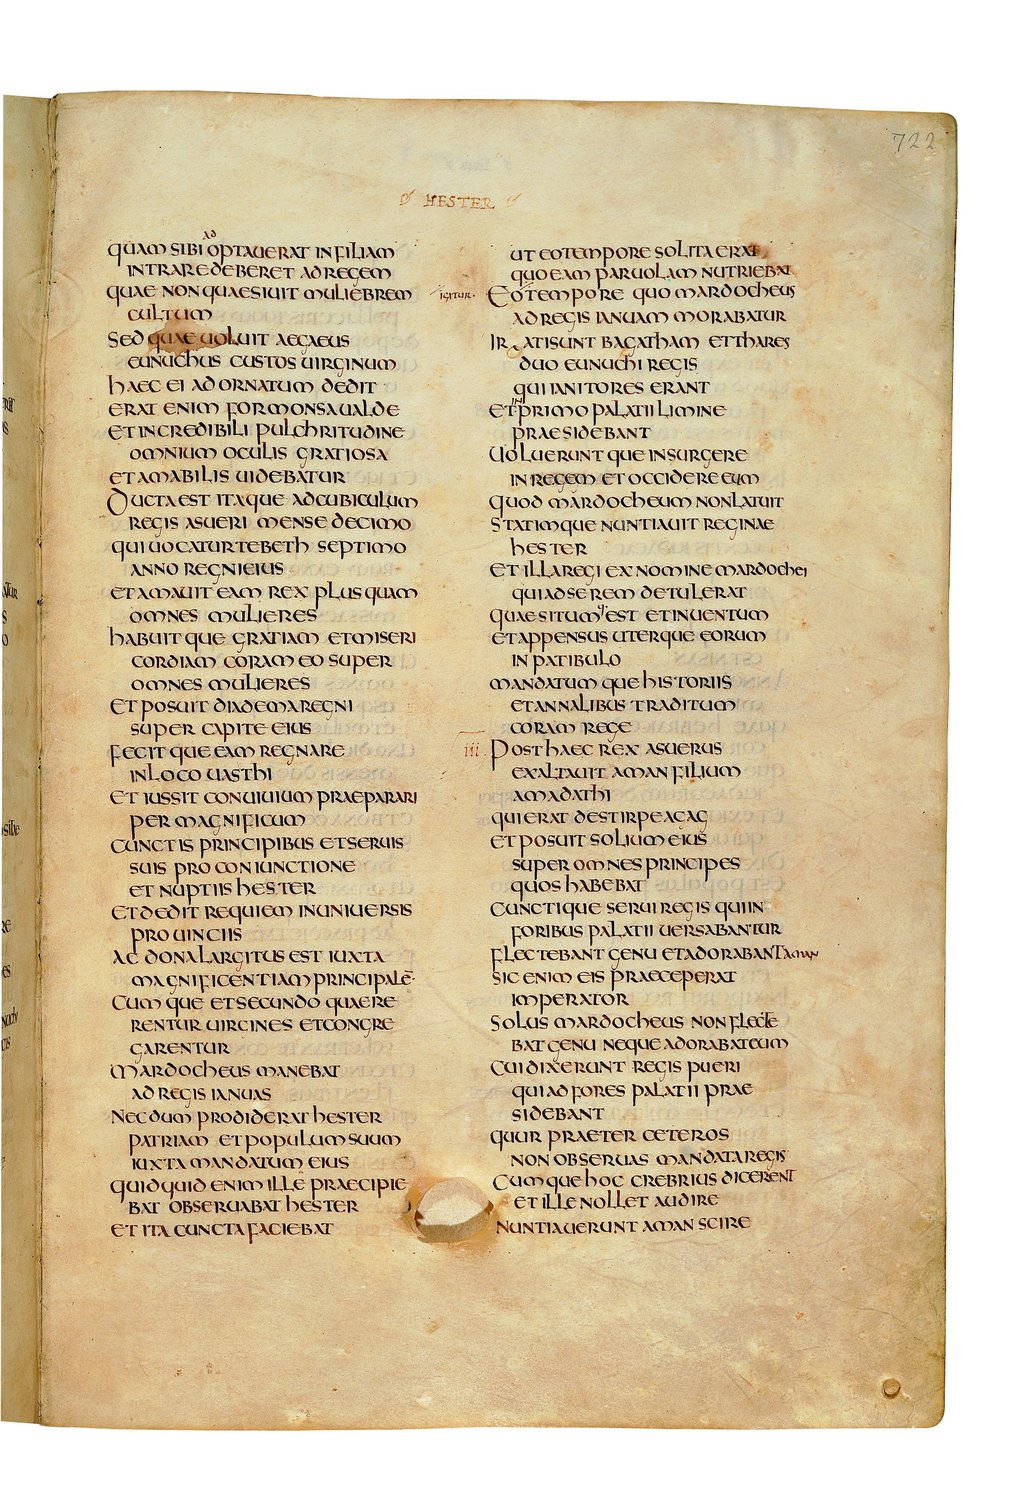 722
HESTER
QUAM SIBI ADOPTAUERAT IN FILIAM
INTRARE DEBERET AD REGEM
QUAE NON QUAESIUIT MULIEBREM
CULTUM
SED QUAE UOLUIT AEGAEUS
EUNUCHUS CUSTOS UIRGINUM
HAEC EI AD ORNATUM DEDIT
ERAT ENIM FORMONSA UALDE
ET INCREDIBILI PULCHRITUDINE
OMNIUM OCULIS GRATIOSA
ET AMABILIS UIDEBATUR
DUCTA EST ITAQUE AD CUBICULUM
REGIS ASUERI MENSE DECIMO
QUI UOCATUR TEBETH SEPTIMO
ANNO REGNI EIUS
ET AMAUIT EAM REX PLUS QUAM
OMNES MULIERES
HABUITQUE GRATIAM ET MISERI
CORDIAM CORAM EO SUPER
OMNES MULIERES
ET POSUIT DIADEMA REGNI
SUPER CAPITE EIUS
FECITQUE EAM REGNARE
IN LOCO UASTHI
ET IUSSIT CONUIUIUM PRAEPARARI
PER MAGNIFICUM
CUNCTIS PRINCIPIBUS ET SERUIS
SUIS PRO CONIUNCTIONE
ET NUPTIIS HESTER
ET DEDIT REQUIEM IN UNIUERSIS
PROUINCIIS
AC DONA LARGITUS EST IUXTA
MAGNIFICENTIAM PRINCIPALE
CUMQUE ET SECUNDO QUAERE
RENTUR UIRGINES ET CONGRE
GARENTUR
MARDOCHEUS MANEBAT
AD REGIS IANUAS
NECDUM PRODIDERAT HESTER
PATRIAM ET POPULUM SUUM
IUXTA MANDATUM EIUS
QUIDQUID ENIM ILLE PRAECIPIE
BAT OBSERUABAT HESTER
ET ITA CUNCTA FACIEBAT
UT EO TEMPORE SOLITA ERAT
QUO EAM PARUOLAM NUTRIEBAT
IGITUR EO TEMPORE QUO MARDOCHEUS
AD REGIS IANUAM MORABATUR
IRATI SUNT BAGATHAM ET THARES
DUO EUNUCHI REGIS
QUI IANITORES ERANT
ET IN PRIMO PALATII LIMINE
PRAESIDEBANT
UOLUERUNTQUE INSURGERE
IN REGEM ET OCCIDERE EUM
QUOD MARDOCHEUM NON LATUIT
STATIMQUE NUNTIAUIT REGINAE
HESTER
ET ILLA REGI EX NOMINE MARDOCHEI
QUI AD SE REM DETULERAT
QUAESITUM EST ET INUENTUM
ET APPENSUS UTERQUE EORUM
IN PATIBULO
MANDATUMQUE HISTORIIS
ET ANNALIBUS TRADITUM
CORAM REGE
III POST HAEC REX ASUERUS
EXALTAUIT AMAN FILIUM
AMADATHI
QUI ERAT DE STIRPE AGAG
ET POSUIT SOLIUM EIUS
SUPER OMNES PRINCIPES
QUOS HABEBAT
CUNCTIQUE SERUI REGIS QUI IN
FORIBUS PALATII UERSABANTUR
FLECTEBANT GENU ET ADORABANT AMAN
SIC ENIM EIS PRAECEPERAT
IMPERATOR
SOLUS MARDOCHEUS NON FLECTE
BAT GENU NEQUE ADORABAT EUM
CUI DIXERUNT REGIS PUERI
QUI AD FORES PALATII PRAE
SIDEBANT
QUUR PRAETER CETEROS
NON OBSERUAS MANDATA REGIS
CUMQUE HOC CREBRIUS DICERENT
ET ILLE NOLLET AUDIRE
NUNTIAUERUNT AMAN SCIRE